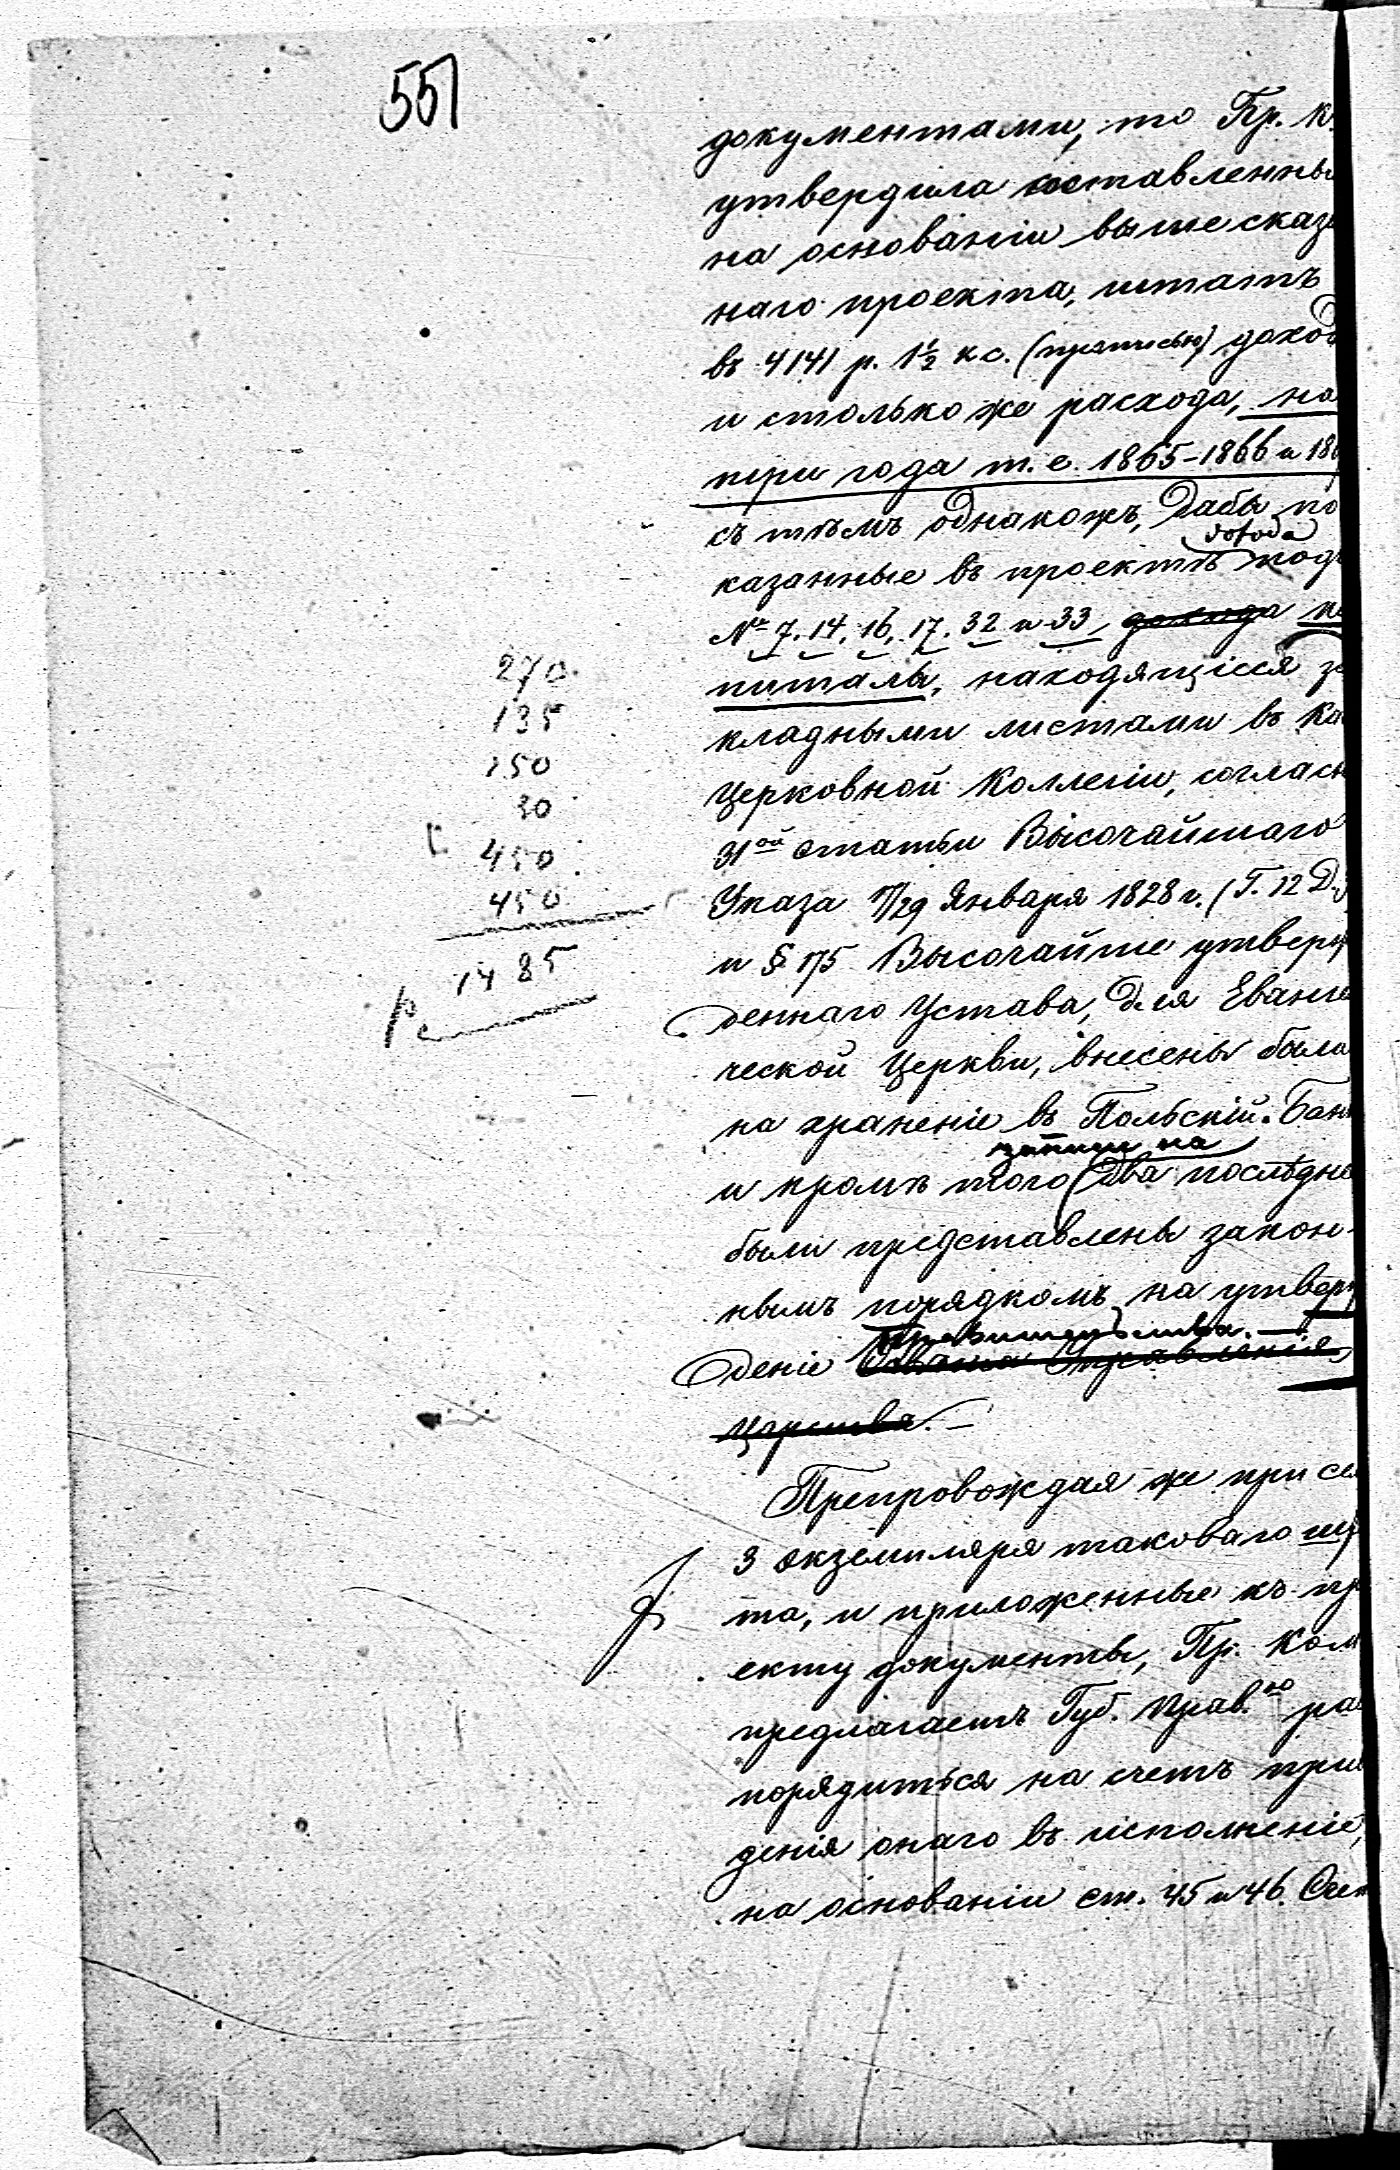 551
документами, то Пр. К.
утвердила составленны
на основаніи вышесказа
наго проекта, штатъ
въ 4141 р. 1½ кс. (прописью) доход
и столько же расхода, на
три года т. е. 1865-1866 и 186
съ тѣмъ однакожъ, дабы по
дохода
казанные въ проектѣ подъ
№ 7. 14. 16. 17. 32 и 33, дохода ка
питалы, находящіеся за
кладными листами въ Ка
Церковной Коллегіи, соглас
31ой статьи Высочайшаго
Указа 17/29 Января 1828 г. (Т. 12 Д.
и § 175 Высочайше утверж
деннаго Устава, для Еванге
ческой Церкви, внесены была
на храненіе въ Польскій Бан
записи на
и кромѣ того два послѣдн
были представлены закон-
нымъ порядкомъ на утверж
Правительства.
деніе Совѣта Управленія
Царства.
Препровождая же при се
3 экземпляра таковаго шт
та, и приложенные къ пр
екту документы, Пр. Ком
предлагаетъ Губ. Прав.ю рас
порядиться на счетъ приве
денія онаго въ исполненіе,
на основаніи ст. 45 и 46. Счет
270
135
150
30
450
450
р 1485